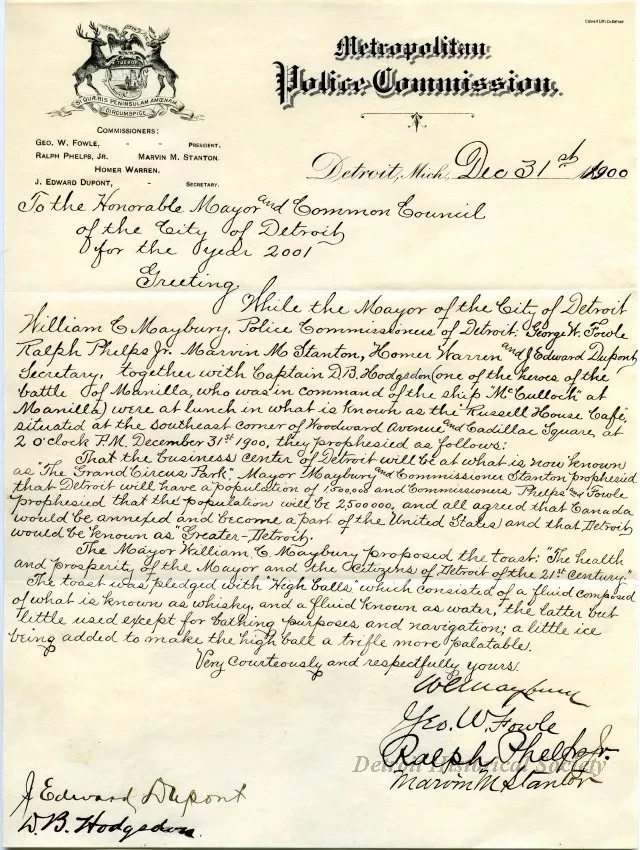 Calvert Lith. Co. Detroit
Metropolitan
Police Commission.
TUEBOR
SI QUÆRIS PENINSULAM AMŒNAM
CIRCUMSPICE
COMMISSIONERS:
GEO. W. FOWLE, - - PRESIDENT.
RALPH PHELPS, JR. MARVIN M. STANTON.
HOMER WARREN.
J. EDWARD DUPONT, - SECRETARY.
Detroit, Mich., Dec 31st 1900
To the Honorable Mayor and Common Council
of the City of Detroit
for the year 2001
Greeting
While the Mayor of the City of Detroit
William C Maybury, Police Commissioners of Detroit: George W. Fowle
Ralph Phelps Jr. Marvin M Stanton, Homer Warren and J Edward Dupont,
Secretary, together with Captain D.B. Hodgsdon (one of the heroes of the
battle of Manilla, who was in command of the ship "McCulloch" at
Manilla) were at lunch in what is known as the Russell House Café,
situated at the southeast corner of Woodward Avenue and Cadillac Square, at
2 o'clock P.M. December 31st 1900, they prophesied as follows:
That the business center of Detroit will be at what is now known
as "The Grand Circus Park". Mayor Maybury and Commissioner Stanton prophesied
that Detroit will have a population of 1500,000 and Commissioners Phelps and Fowle
prophesied that the population will be 2500000, and all agreed that Canada
would be annexed and become a part of the United States and that Detroit
would be known as "Greater-Detroit.
The Mayor William C. Maybury proposed the toast: "The health
and prosperity of the Mayor and the citizens of Detroit of the 21st Century."
The toast was pledged with "High balls" which consisted of a fluid composed
of what is known as whisky, and a fluid known as water, the latter but
little used except for bathing purposes and navigation; a little ice
being added to make the high ball a trifle more palatable.
Very courteously and respectfully yours.
W C Maybury
Geo. W. Fowle
Ralph Phelps Jr.
Detroit Historical Society
Marvin M Stanton
J Edward Dupont
D. B. Hodgsdon.